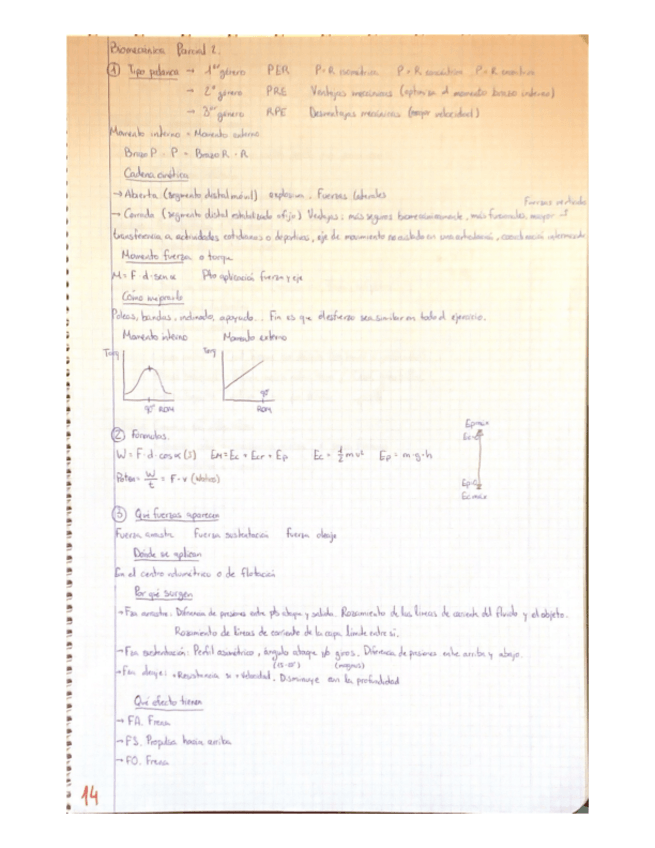 Biomecánica Parcial 2.
① Tipo palanca → 1er género PER P=R isométrica P>R concéntrica P<R excéntrica
→ 2º género PRE Ventajas mecánicas (optimiza el momento brazo interno)
→ 3er género RPE Desventajas mecánicas (mayor velocidad)
Momento interno = Momento externo
Brazo P · P = Brazo R · R
Cadena cinética
→ Abierta (segmento distal móvil) explosivo. Fuerzas laterales
Fuerzas verticales
→ Cerrada (segmento distal estabilizado o fijo) Ventajas: más seguros biomecánicamente, más funcionales, mayor
transferencia a actividades cotidianas o deportivas, eje de movimiento no aislado en una articulación, coordinación
Momento fuerza o torque
M = F · d · sen α Pto aplicación fuerza y eje
Cómo mejorarlo
Poleas, bandas, inclinado, apoyado... Fin es que el esfuerzo sea similar en todo el ejercicio.
Momento interno Momento externo
Torq Torq
90º
90º ROM ROM
② Fórmulas.
Ep máx
Ec = 0
W = F · d · cos α (J) EM = Ec + Ecr + Ep Ec = 1/2 m v² Ep = m · g · h
Poten = W/t = F · v (Watios)
Ep = 0
Ec máx
③ Qué fuerzas aparecen
Fuerza arrastre Fuerza sustentación Fuerza oleaje
Dónde se aplican
En el centro volumétrico o de flotación
Por qué surgen
→ Fza arrastre: Diferencia de presiones entre pto ataque y salida. Rozamiento de las líneas de corriente del fluido y el objeto.
Rozamiento de líneas de corriente de la capa límite entre sí.
→ Fza sustentación: Perfil asimétrico, ángulo ataque y/o giros. Diferencia de presiones entre arriba y abajo.
(magnus)
→ Fza oleaje: + Resistencia si + velocidad. Disminuye con la profundidad
Qué efecto tienen
→ FA. Frena
→ FS. Propulsa hacia arriba
→ FO. Frena
14